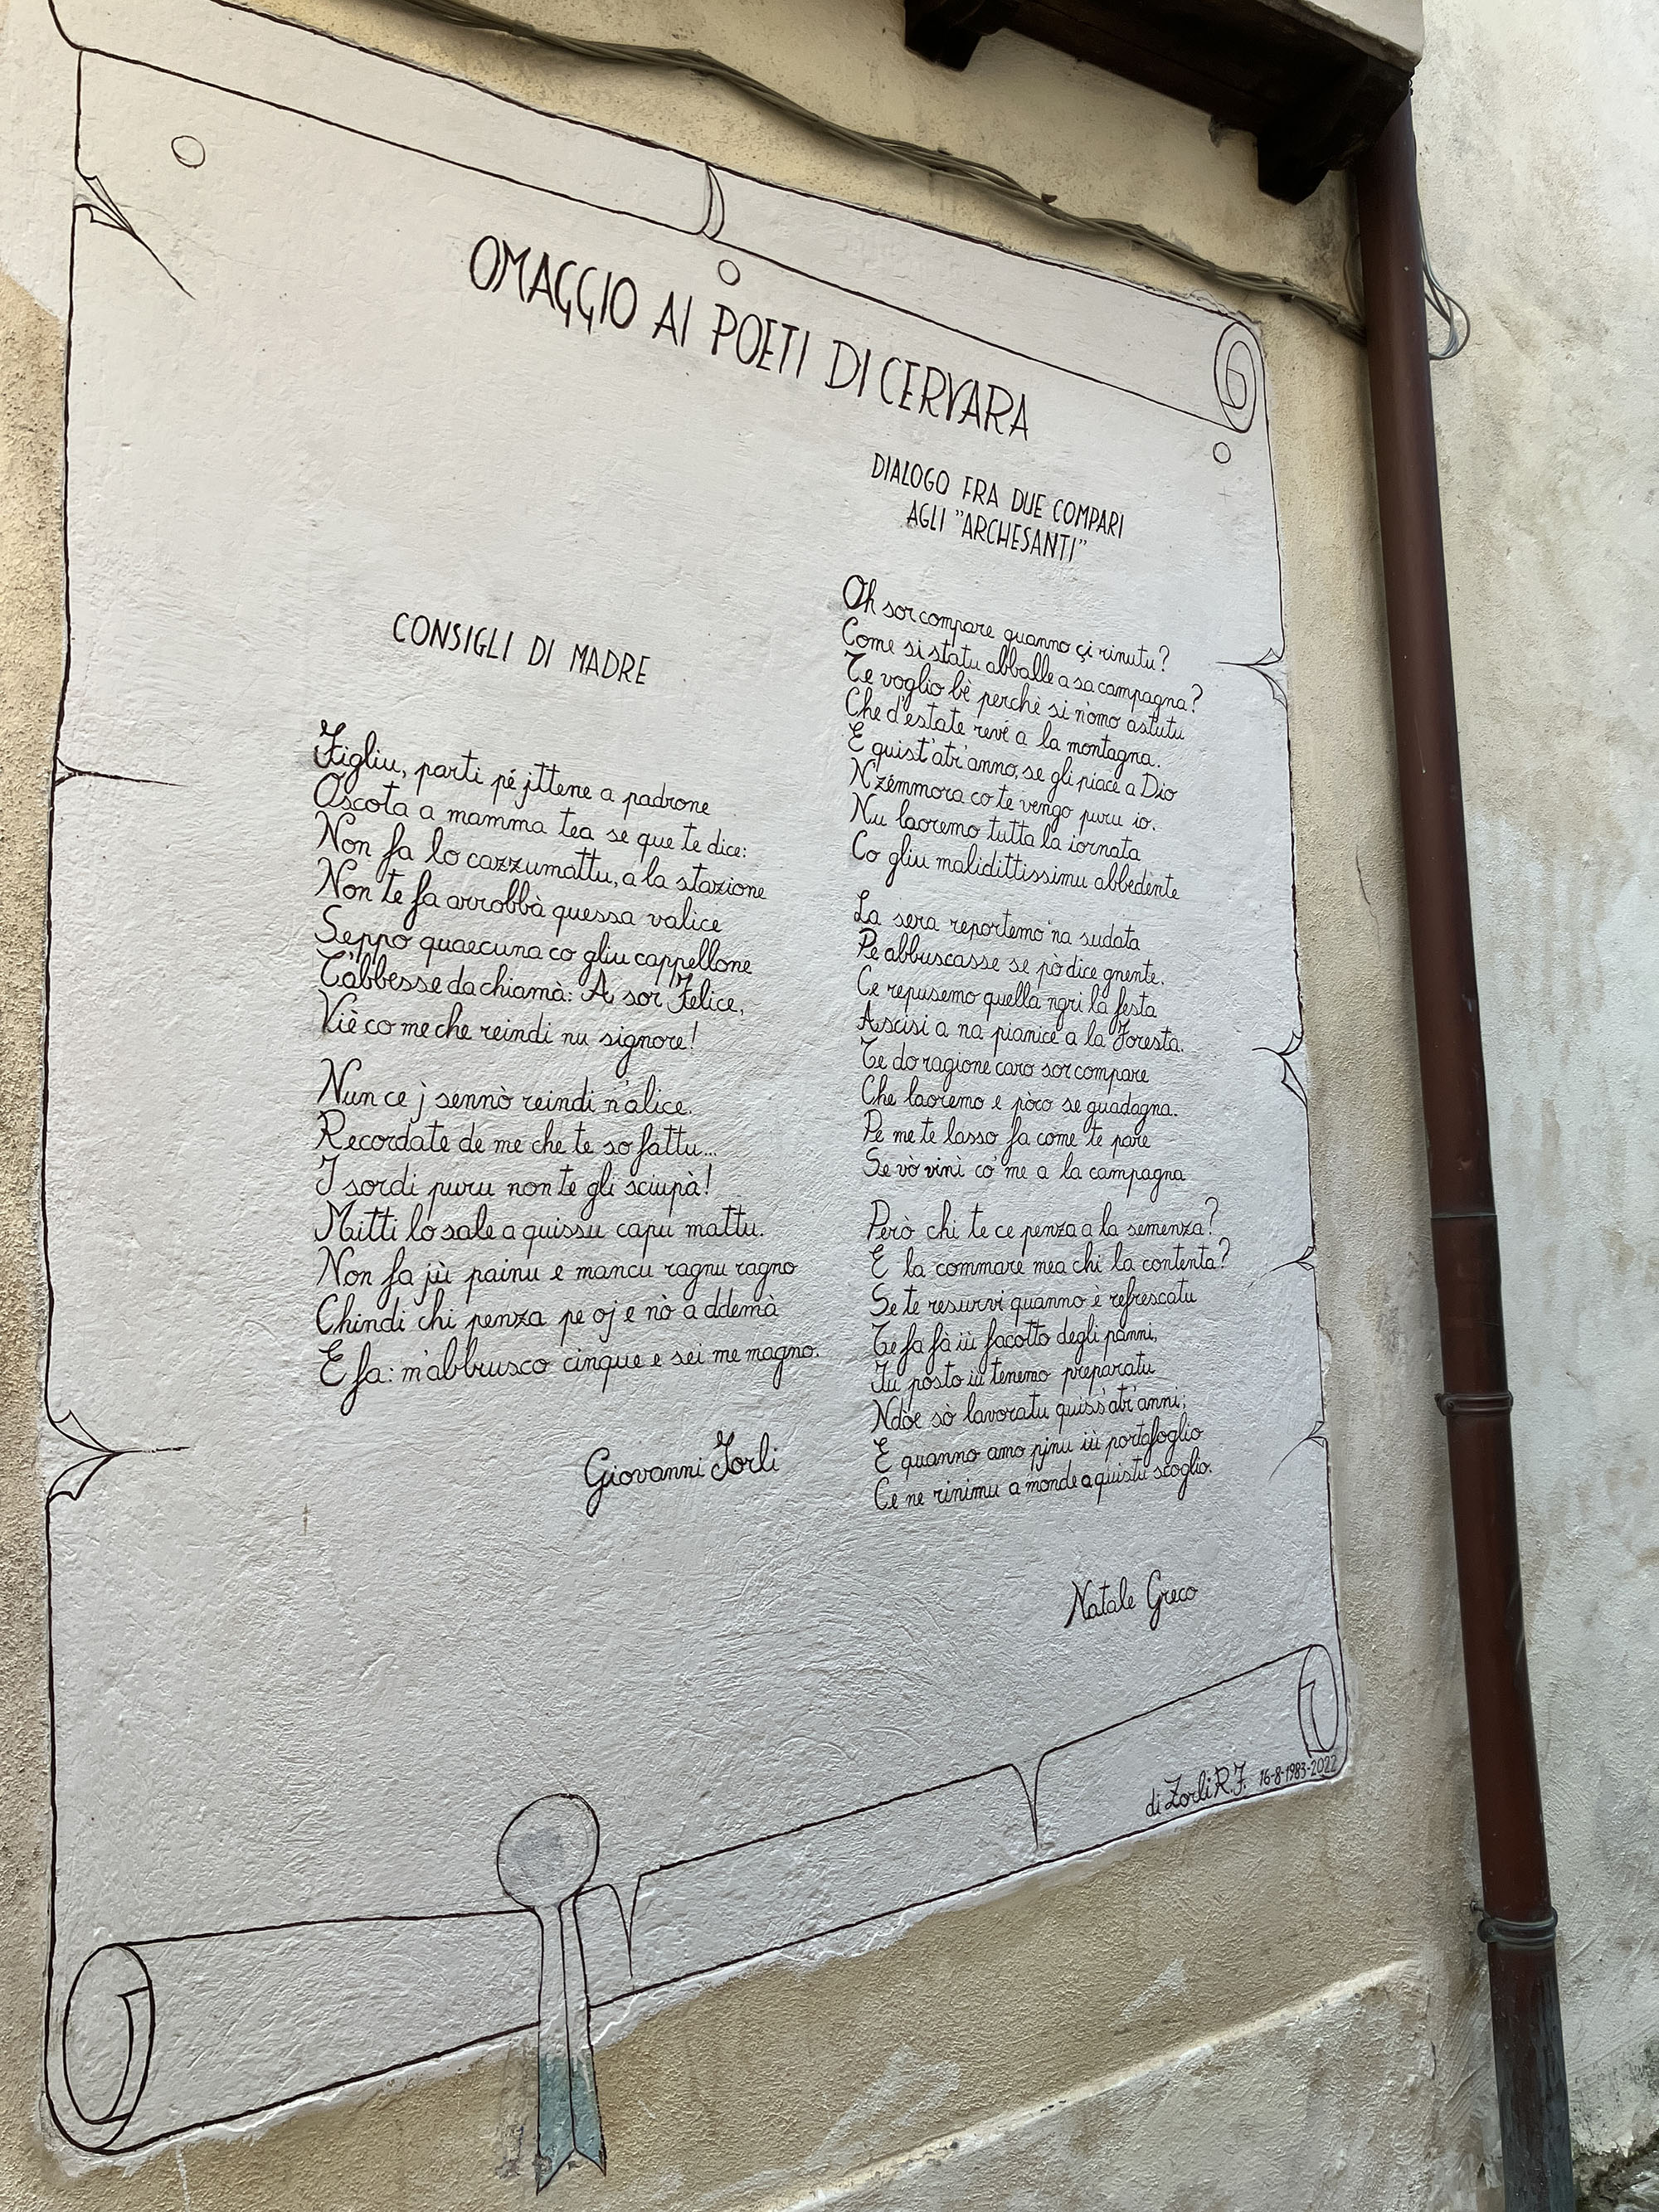 OMAGGIO AI POETI DI CERVARA
CONSIGLI DI MADRE
Figliu, parti pé jttene a padrone
Ascota a mamma tea se que te dice:
Non fa lo cazzumattu, a la stazione
Non te fa arrobbà quessa valice
Seppo quaecuna co gliu cappellone
T'abbesse da chiamà: A, sor Felice,
Viè co me che reindi nu signore!
Nun ce j sennò reindi n'alice.
Recordate de me che te so fattu...
I sordi puru non te gli sciupà!
Mitti lo sale a quissu capu mattu.
Non fa jù painu e mancu ragnu ragno
Chindi chi penza pe oj e nò a ddemà
E fa: m'abbrusco cinque e sei me magno.
Giovanni Zorli
DIALOGO FRA DUE COMPARI
AGLI "ARCHESANTI"
Oh sor compare quanno çi rinutu?
Come si statu abballe a sa campagna?
Te voglio bè perchè si n'omo astutu
Che d'estate revé a la montagna.
E quist'atr'anno, se gli piace a Dio
N'zémmora co te vengo puru io.
Nu laoremo tutta la iornata
Co gliu maliditissimu abbedente
La sera reportemo na sudata
Pe abbuscasse se pò dice gnente.
Ce repusemo quella ngri la festa
Ascisi a na pianice a la Foresta.
Te do ragione caro sor compare
Che laoremo e pòco se guadagna.
Pe me te lasso fa come te pare
Se vò vinì co' me a la campagna
Però chi te ce penza a la semenza?
E la commare mea chi la contenta?
Se te resurvi quanno è refrescatu
Te fa fà iù facotto degli panni,
Iu posto iu tenemo preparatu
Ndoe sò lavoratu quiss'atr'anni;
E quanno amo pjnu iù portafoglio
Ce ne rinimu a monde a quistu scoglio.
Natale Greco
di Zorli R.F. 16-8-1983-2022